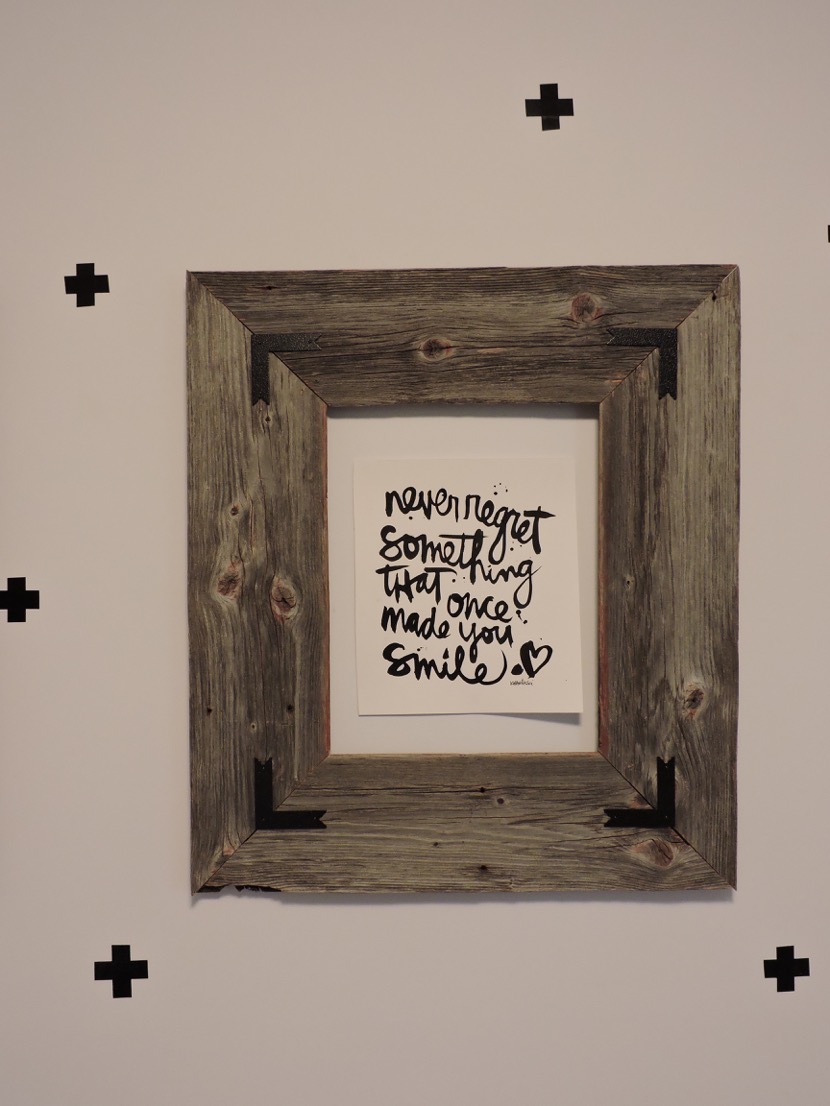 never regret
something
THAT once
made you
smile.